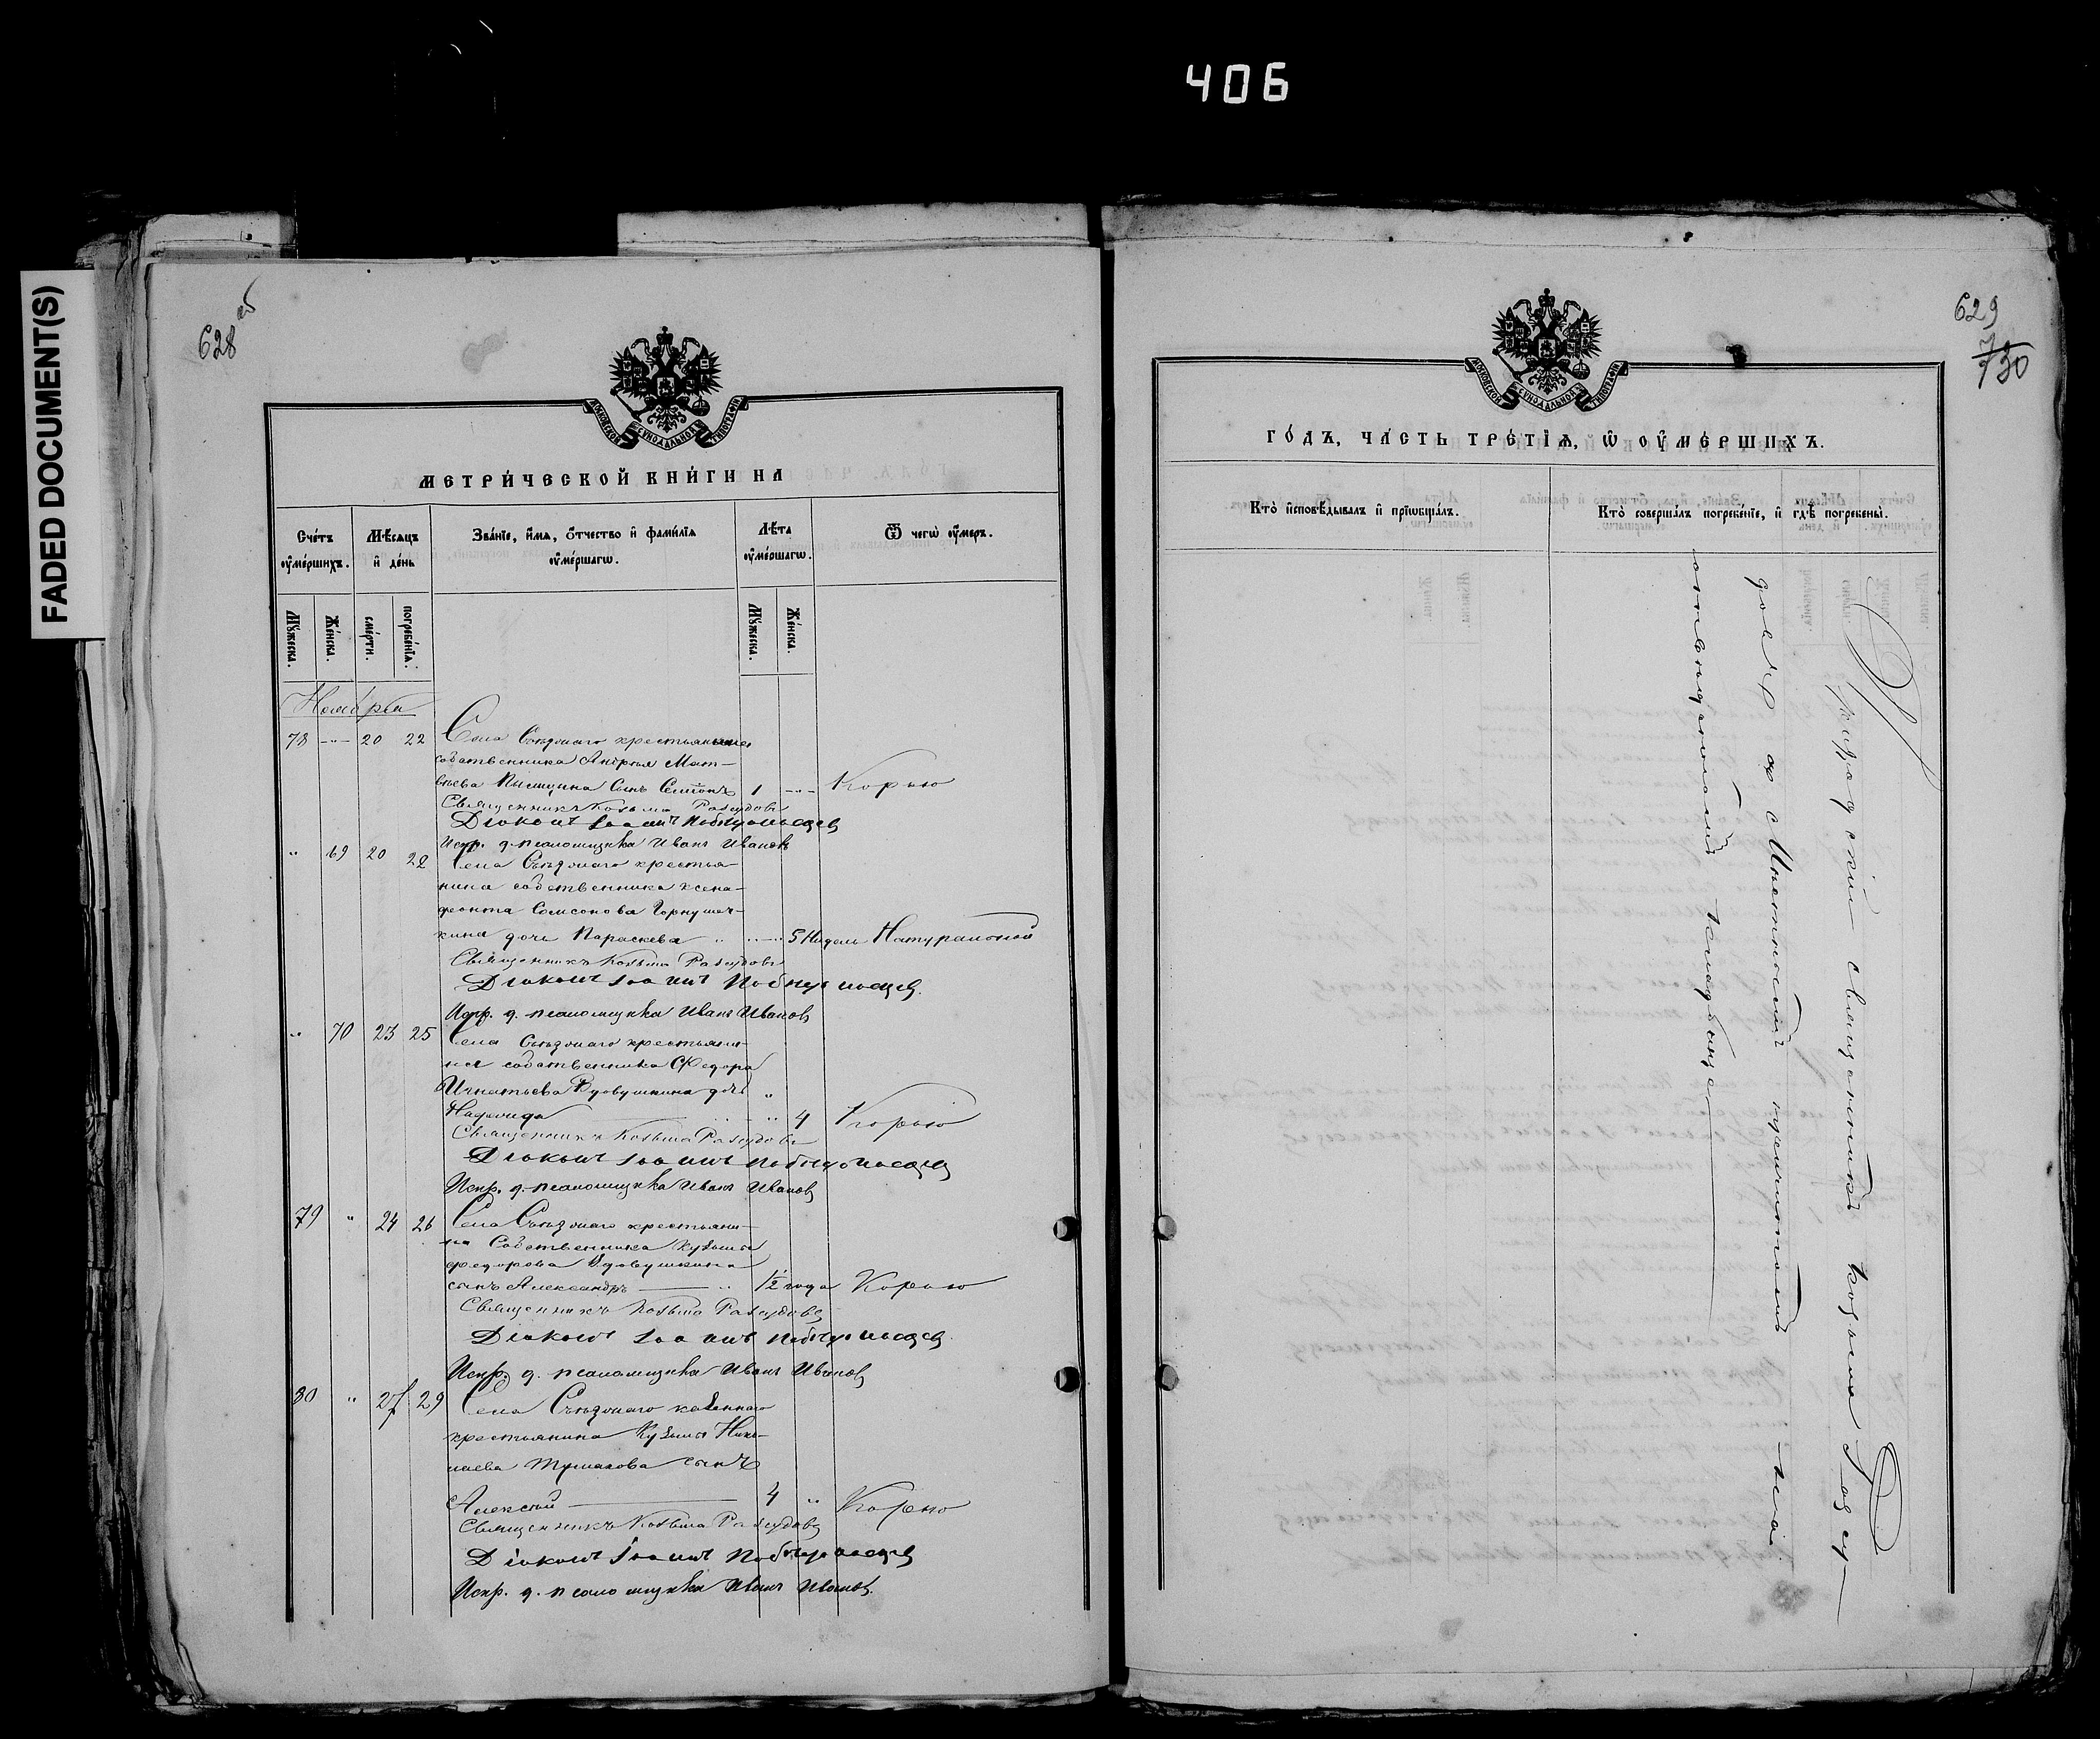 406
FADED DOCUMENT(S)
628 об
МОСКОВСКОЙ СѴНОДАЛЬНОЙ ТИПОГРАФІИ
МЕТРИ́ЧЕСКОЙ КНИ́ГИ НА
Счётъ ᲂу҆ме́ршихъ.
Мѣ́сѧцъ и҆ де́нь
Зва́нїе, и҆́мѧ, ѻ҆́тчество и҆ фами́лїѧ ᲂу҆ме́ршагѡ.
Лѣ́та ᲂу҆ме́ршагѡ.
Ѿ чегѡ̀ ᲂу҆́меръ.
Мꙋ́жеска.
Же́нска.
сме́рти.
погребе́нїѧ.
Мꙋ́жеска.
Же́нска.
Ноября
78 -"- 20 22 Села Съѣзжаго крестьянина
собственника Андрея Мат-
вѣева сынъ 1 -"- Корью
Священникъ Козьма Разсудовъ
Діаконъ Іоаннъ Побѣдоносцев
Испр. д. псаломщика Иванъ Ивановъ
" 69 20 22 Села Съѣзжаго крестья-
нина собственника Ксено-
фонта Самсонова Горнушеч-
кина дочь Параскева " -"- 5 Недѣль Натуральной
Священникъ Козьма Разсудовъ
Діаконъ Іоаннъ Побѣдоносцев.
Испр. д. псаломщика Иванъ Ивановъ
" 70 23 25 Села Съѣзжаго крестьяни-
на собственника Федора
Игнатьева Вдовушкина дочь "
Надежда " 4 Корью
Священникъ Козьма Разсудовъ
Діаконъ Іоаннъ Побѣдоносцев
Испр. д. псаломщика Иванъ Ивановъ
79 " 24 26 Села Съѣзжаго крестьяни-
на Собственника Кузьмы
Федорова Вдовушкина
сынъ Александръ " 1/2 года Корью
Священникъ Козьма Разсудовъ
Діаконъ Іоаннъ Побѣдоносцев.
Испр. д. псаломщика Иванъ Ивановъ
80 " 27 29 Села Съѣзжаго казеннаго
крестьянина Кузьмы Нико-
лаева Тушакова сынъ
Алексѣй 4 " Корью
Священникъ Козьма Разсудовъ
Діаконъ Іоаннъ Побѣдоносцев
Испр. д. псаломщика Иванъ Ивановъ.
629
730
МОСКОВСКОЙ СѴНОДАЛЬНОЙ ТИПОГРАФІИ
ГО́ДЪ, ЧА́СТЬ ТРЕ́ТЇѦ, Ѡ҆ ОУ҆МЕ́РШИХЪ.
Кто̀ и҆сповѣ́дывалъ и҆ прїѡбща́лъ.
Кто̀ соверша́лъ погребе́нїе, и҆ гдѣ̀ погребены̀.
священникъ Козьма Разсу-
довъ со Штатнымъ причтомъ — на
отведенномъ кладбищѣ